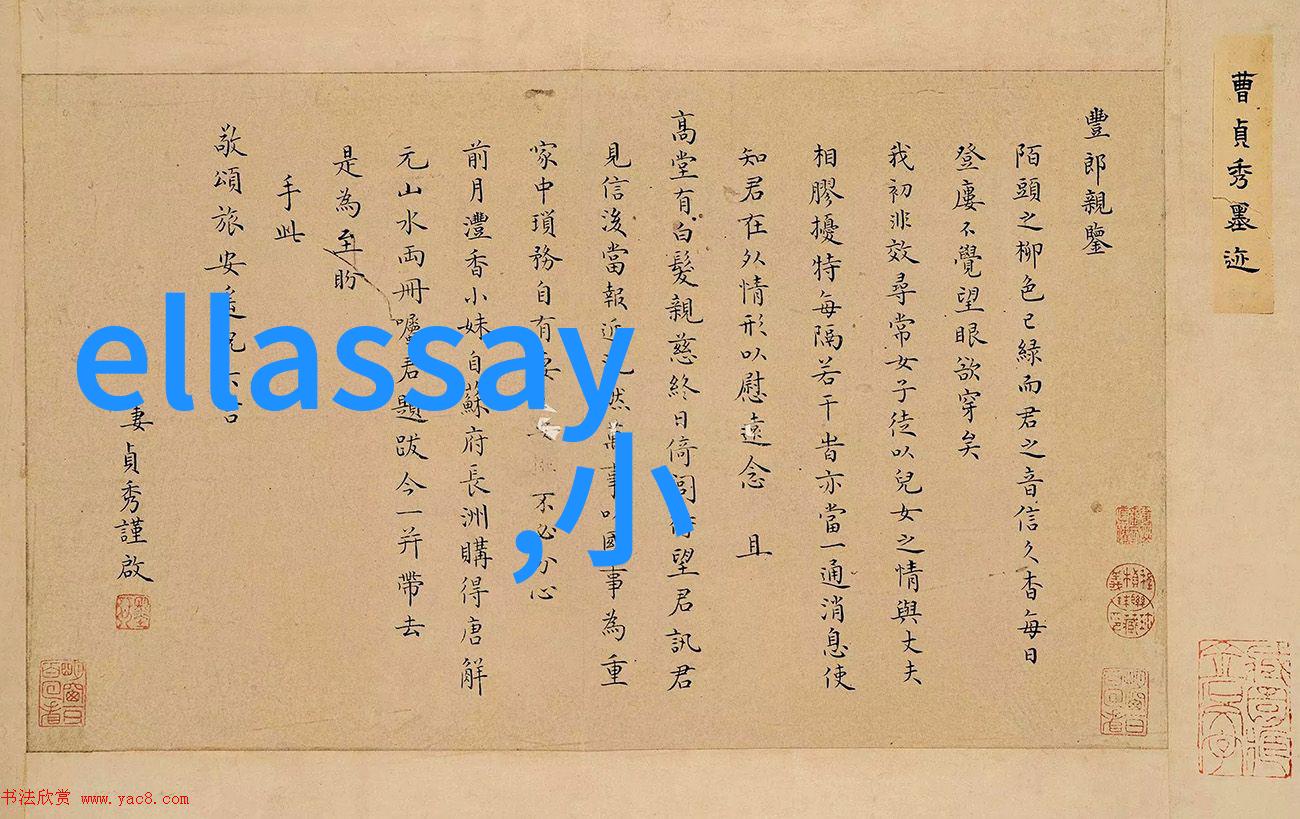 曹貞秀墨迹
豐郎親鑒
陌頭之柳色已綠而君之音信久杳每日
登廔不覺望眼欲穿矣
我初非效尋常女子徒以兒女之情與丈夫
相膠擾特每隔若干旹亦當一通消息使
知君在外情形以慰遠念 且
高堂有白髮親慈終日倚閭待望君訊君
見信後當報近況然萬事以國事為重
家中瑣務自有妻 不必分心
前月灃香小妹自蘇府長洲購得唐解
元山水兩冊囑君題跋今一并帶去
是為至盼
手此
敬頌旅安
妻貞秀謹啟
ellassay
,小
书法欣赏 www.yac8.com